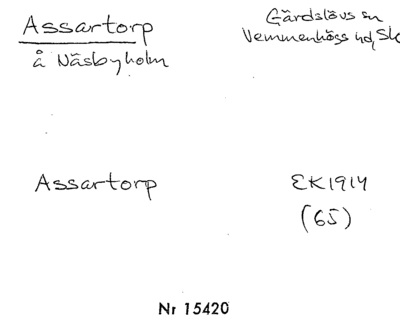 Assartorp
å Näsbyholm
Gärdslövs sn
Vemmenhögs hd, Sk
Assartorp
EK1914
(65)
Nr 15420